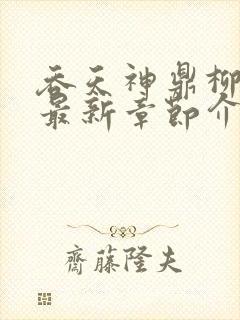 吞天神鼎柳
最新章节介
齋藤隆夫